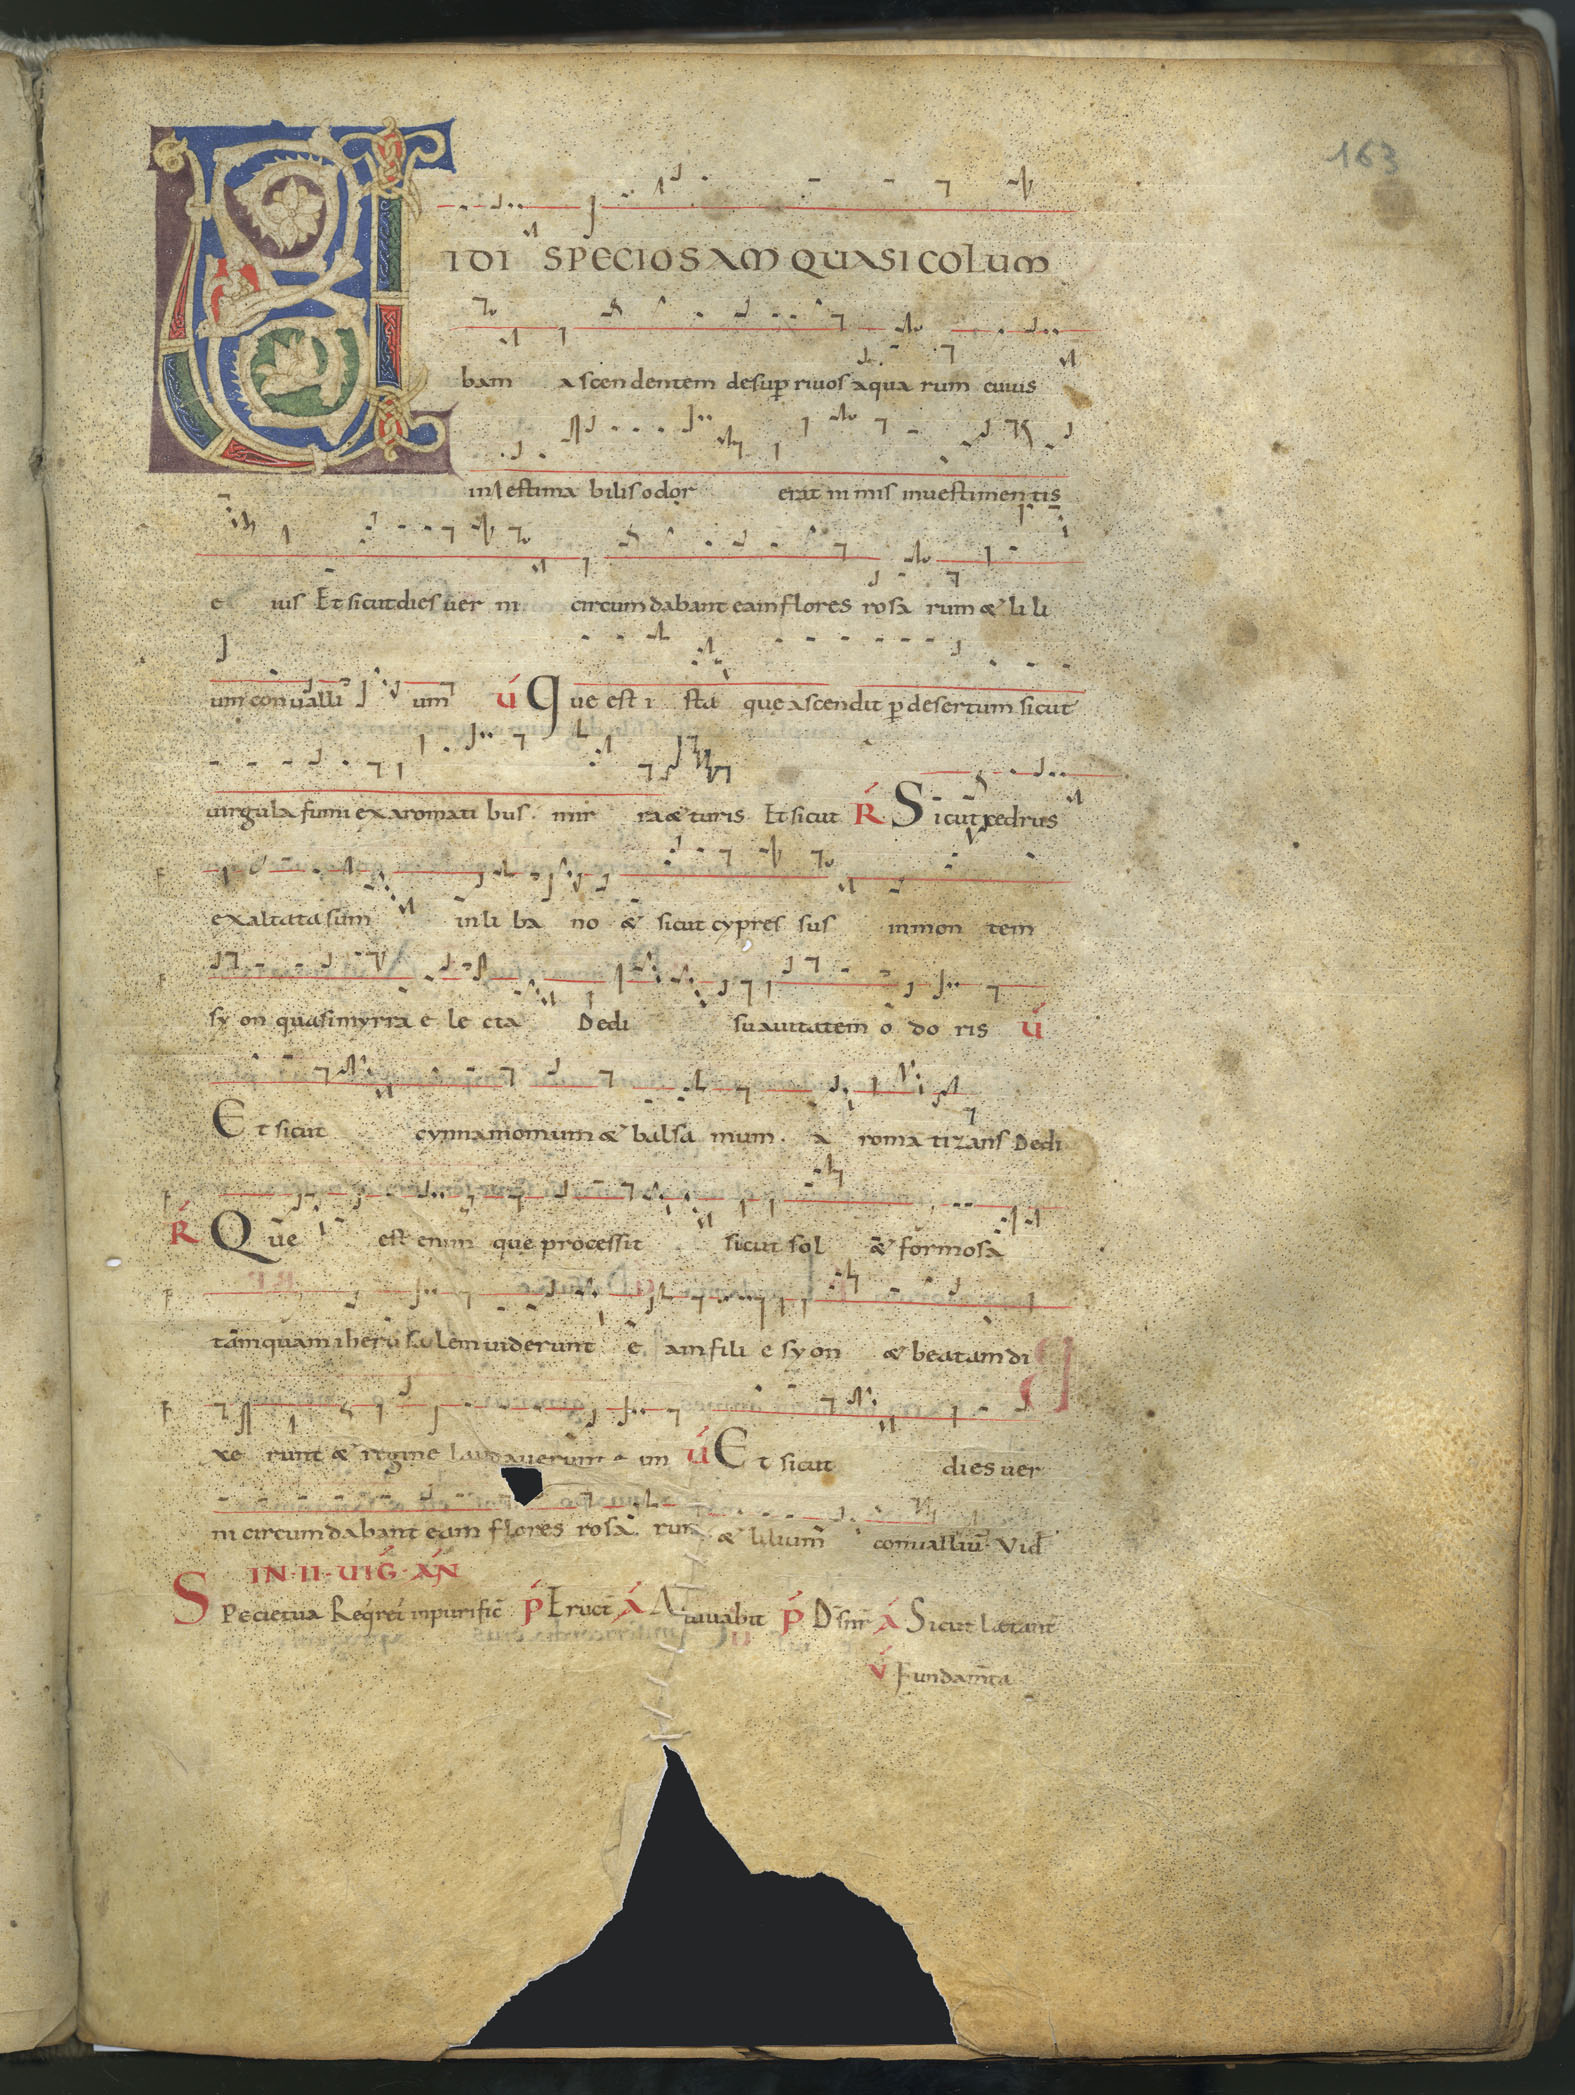 163
UIDI SPECIOSAM QUASI COLUM
bam ascendentem desup riuos aqua rum cuius
inestima bilis odor erat nimis inuestimentis
e ius Et sicut dies uer ni circum dabant eam flores rosa rum & li li
um conualli um V Que est i sta que ascendit p desertum sicut
uirgula fumi ex aromati bus. mir ra & turis Et sicut R Sicut cedrus
exaltata sum in li ba no & sicut cypres sus in mon tem
sy on quasi myrra e le cta Dedi suauitatem o do ris V
Et sicut cynnamomum & balsa mum. a roma tizans Dedi
R Que est enim que processit sicut sol & formosa
tamquam iherusalem uiderunt e am fili e syon & beatam di
xe runt & regine laudauerunt e am V Et sicut dies uer
ni circum dabant eam flores rosa rum & lilium conualliū Vid
IN II UIG AN
Specie tua p Eruct A A iuuabit p A Sicut Lætant
V Fundamta